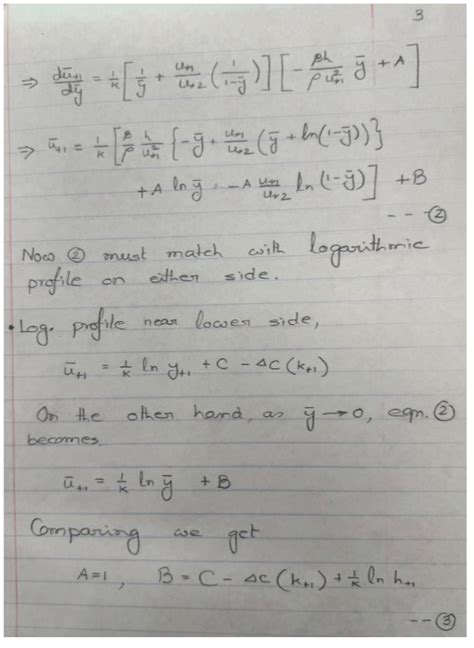 3
⇒ dū₊₁/dȳ = 1/k [ 1/ȳ + u*₁/u*₂ ( 1/(1-ȳ) ) ] [ - βh/ρu*₁² ȳ + A ]
⇒ ū₊₁ = 1/k [ β/ρ h/u*₁² { -ȳ + u*₁/u*₂ ( ȳ + ln(1-ȳ) ) }
+ A ln ȳ - A u*₁/u*₂ ln (1-ȳ) ] + B
- - - ②
Now ② must match with logarithmic
profile on either side.
• Log. profile near lower side,
ū₊₁ = 1/k ln y₊₁ + C - ΔC (k₊₁)
On the other hand, as ȳ → 0, eqn. ②
becomes.
ū₊₁ = 1/k ln ȳ + B
Comparing we get
A=1, B = C - ΔC (k₊₁) + 1/k ln h₊₁
- - ③